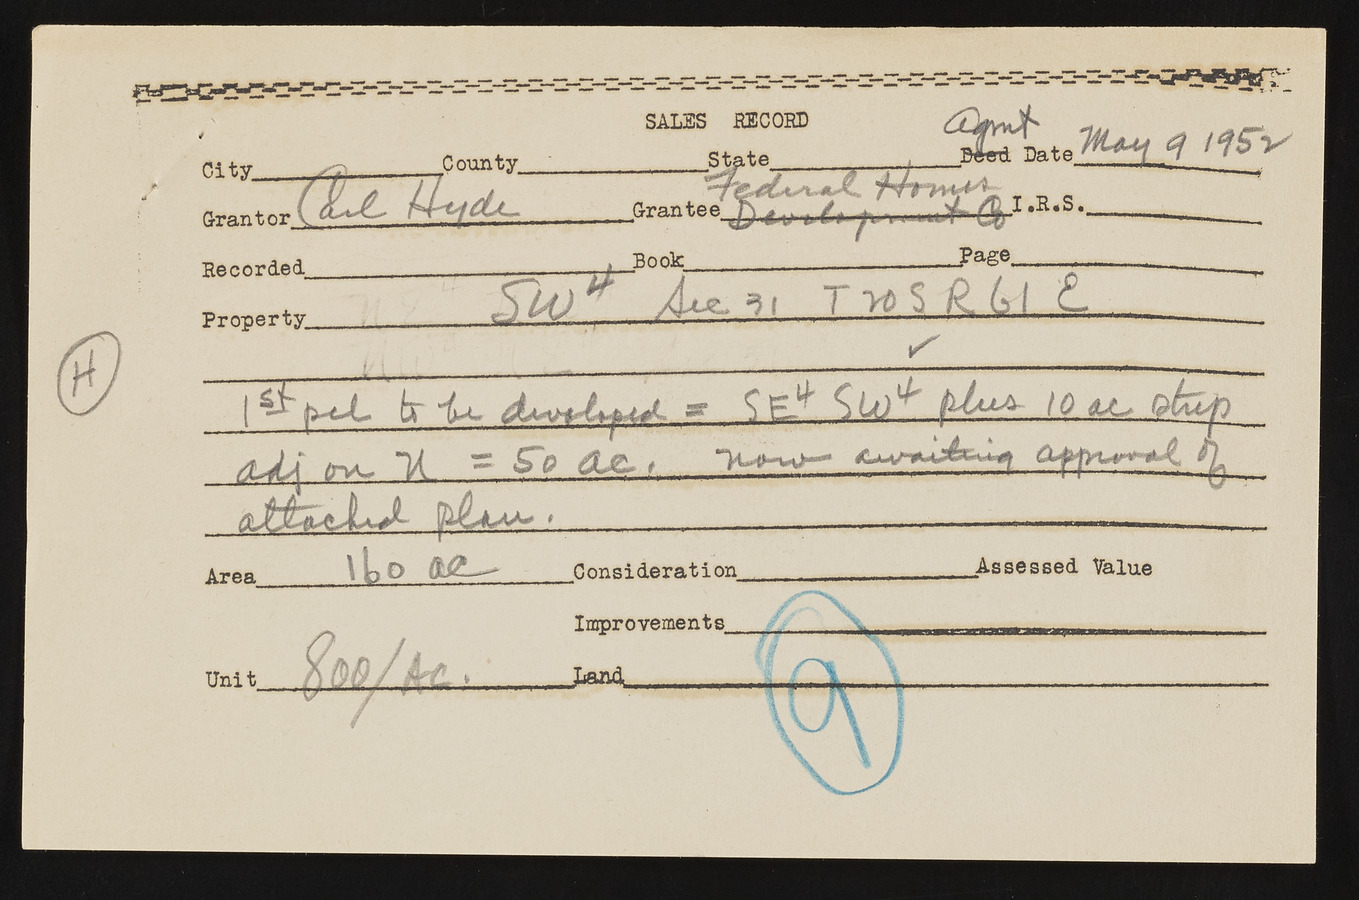 SALES RECORD
Agmt
City County State Deed Date May 9 1952
Federal Homes
Grantor Carl Hyde Grantee Development Co I.R.S.
Recorded Book Page
Property SW4 Sec 31 T 20 S R 61 E
H
1st pcl to be developed = SE4 SW4 plus 10 ac strip
adj on N = 50 ac. now awaiting approval of
attached plan.
Area 160 ac Consideration Assessed Value
Improvements
Unit 800/Ac. Land
9